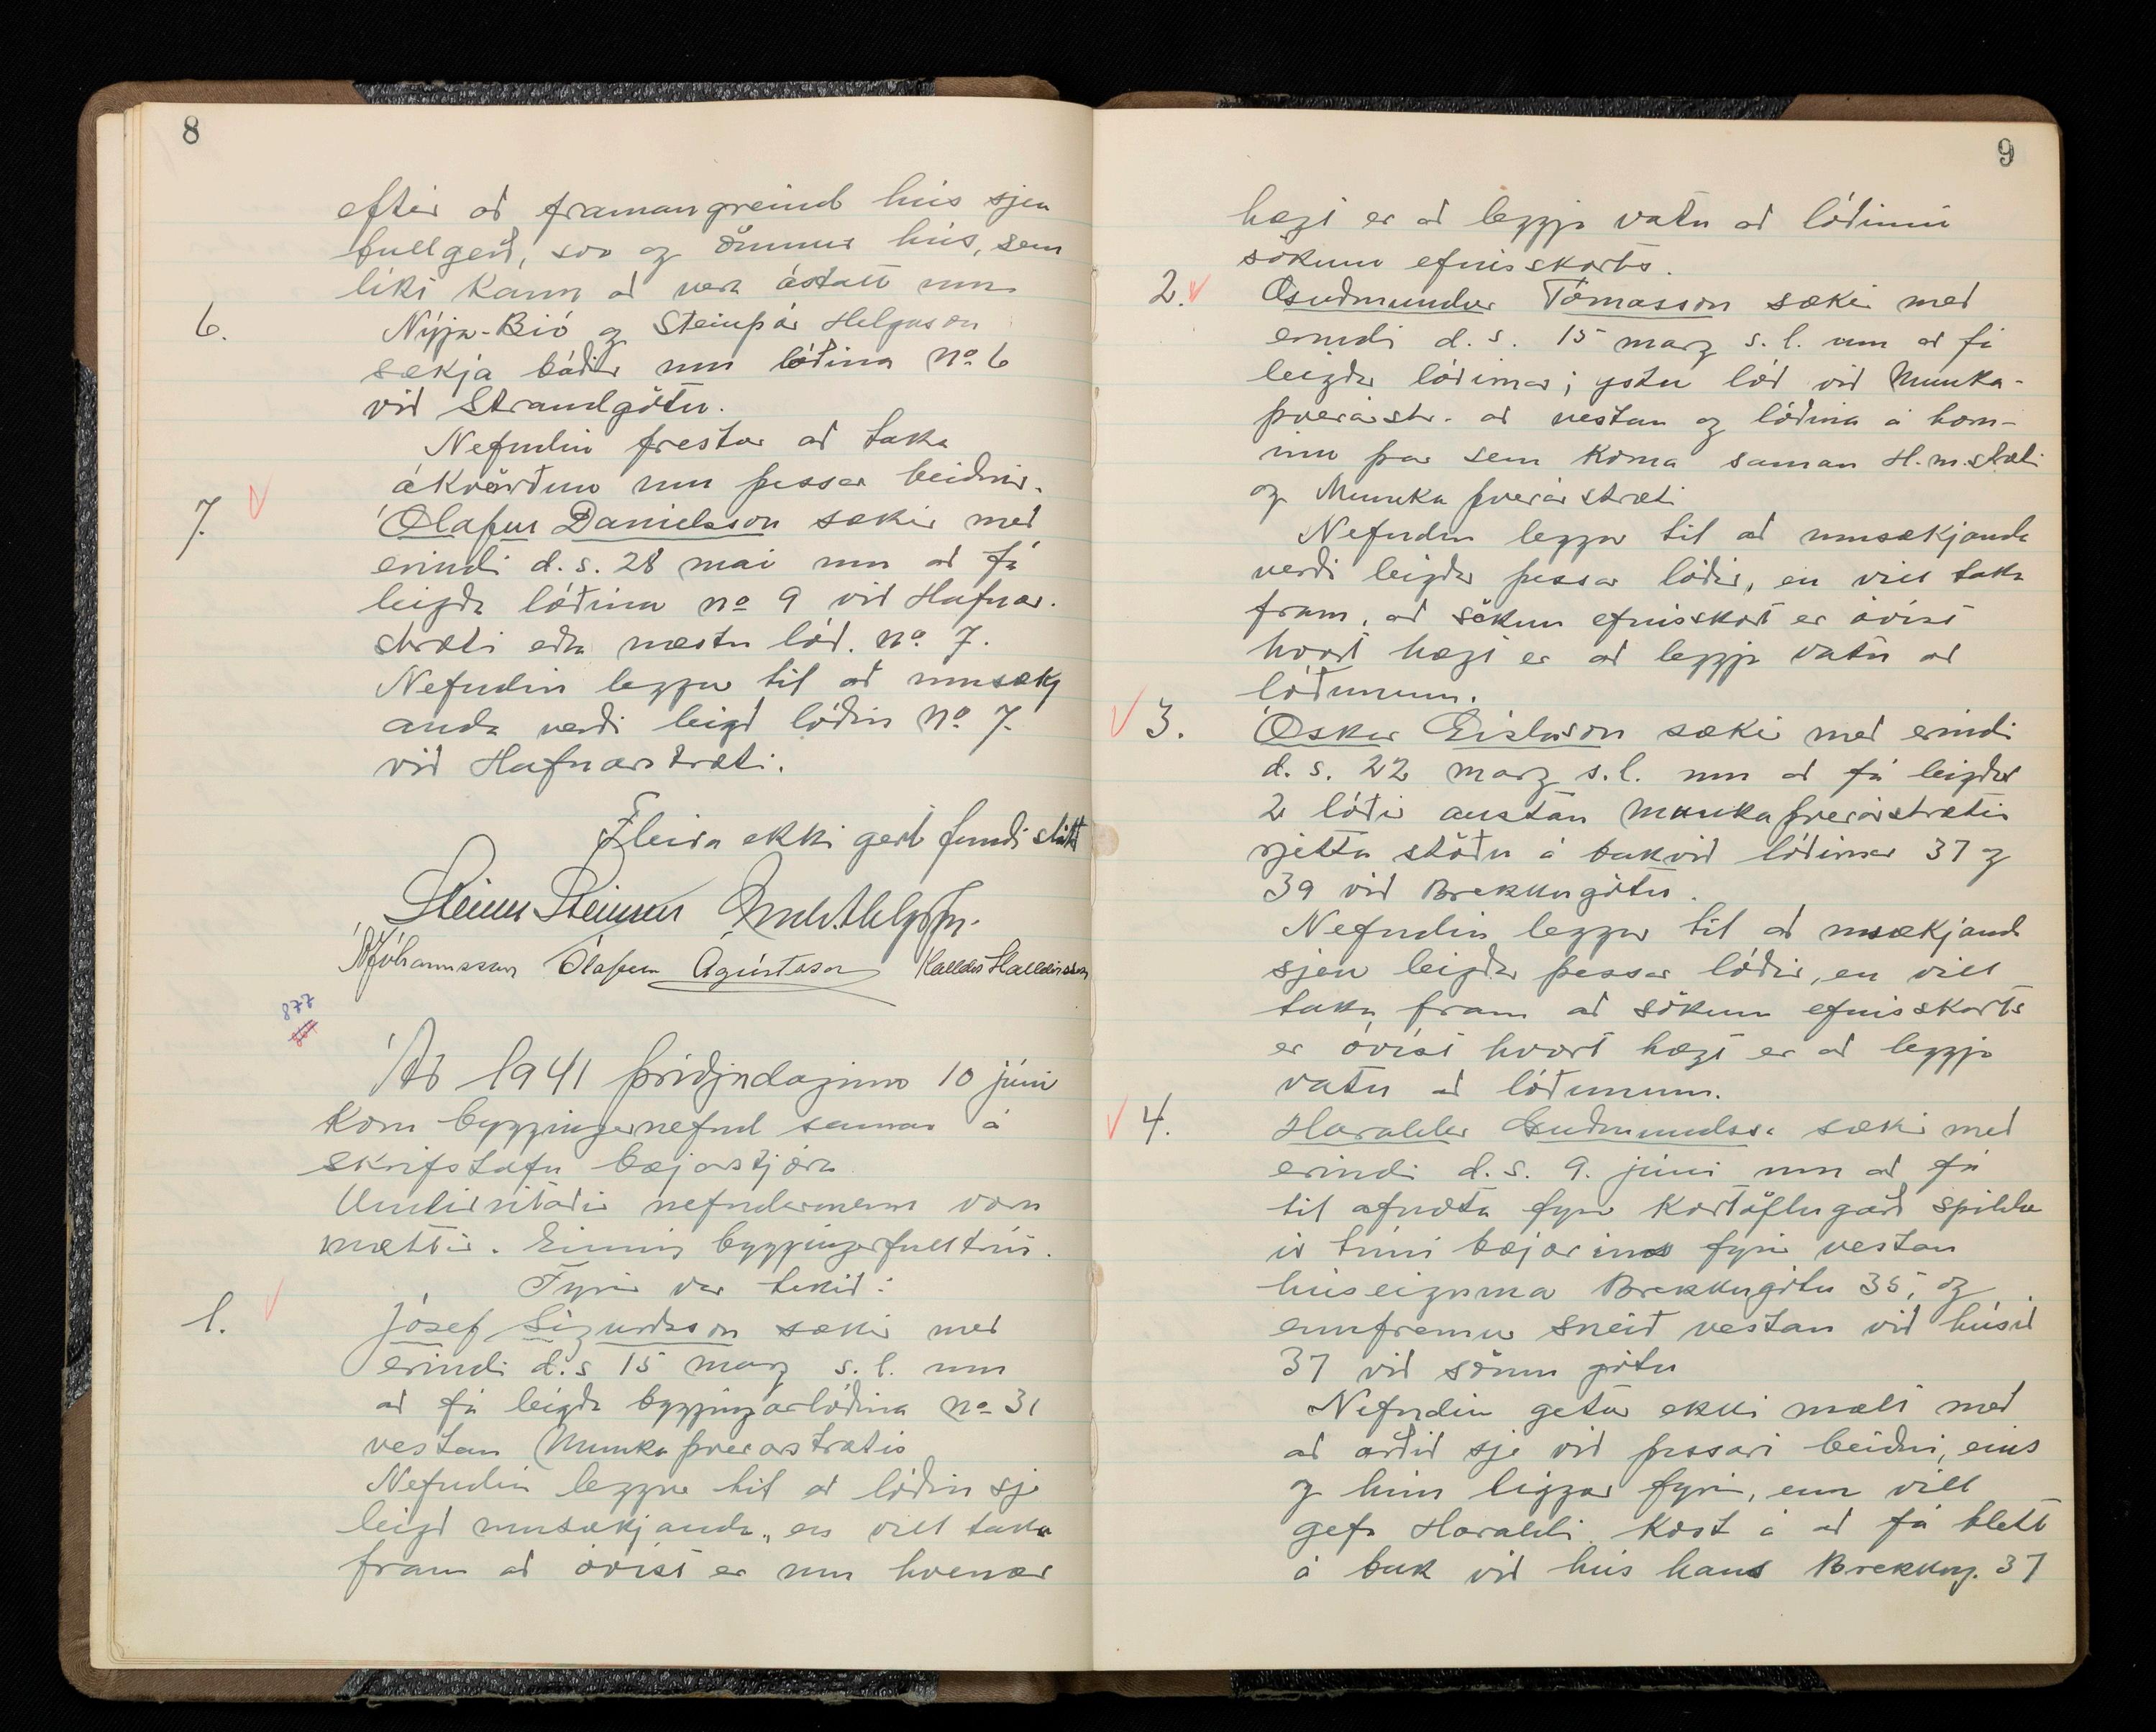 8
eftir að framangreind hús sjeu
fullgerð, svo og önnur hús, sem
líkt kann að vera ástatt um
6. Nýja-Bió og Steinþór Helgason
sækja báðir um lóðina No 6
við Strandgötu.
Nefndin frestar að taka
ákvörðun um þessar beiðnir.
7. Ólafur Daníelsson sækir með
erindi d.s. 28 maí um að fá
leigða lóðina no 9 við Hafnar-
stræti eða næstu lóð. no. 7.
Nefndin leggur til að umsækj
anda verði leigð lóðin No 7.
við Hafnarstræti.
Fleira ekki gert fundi slitið
Steinn Steinsen
Jóhannsson Ólafur Ágústsson Halldór Halldórsson
877
Ár 1941 þriðjudaginn 10 júní
kom byggingarnefnd saman á
skrifstofu bæjarstjóra
Undirritaðir nefndarmenn voru
mættir. Einnig byggingarfulltrúi.
Fyrir var tekið:
1. Jósef Sigurðsson sækir með
erindi d.s 15 marz s.l. um
að fá leigða byggingarlóðina no 31
vestan Munkaþverárstrætis
Nefndin leggur til að lóðin sje
leigð umsækjanda, en vill taka
fram að óvíst er um hvenær
9
hægt er að leggja vatn að lóðinni
sökum efnisskorts.
2. Guðmundur Tómasson sækir með
erindi d.s. 15 marz s.l. um að fá
leigðar lóðirnar; ystu lóð við Munka-
þverárstr. að vestan og lóðina á horn-
inu þar sem koma saman H.m.stræti
og Munkaþverárstræti
Nefndin leggur til að umsækjanda
verði leigðar þessar lóðir, en vill taka
fram, að sökum efnisskort er óvíst
hvort hægt er að leggja vatn að
lóðunum.
3. Óskar Gíslason sækir með erindi
d.s. 22 marz s.l. um að fá leigðar
2 lóðir austan Munkaþverárstrætis
rjettu stöðu á bakvið lóðirnar 37 og
39 við Brekkugötu.
Nefndin leggur til að umsækjand
sjeu leigðar þessar lóðir, en vill
taka fram að sökum efnisskorts
er óvíst hvort hægt er að leggja
vatn að lóðunum.
4. Haraldur Guðmundss. sækir með
erindi d.s. 9. júní um að fá
til afnota fyrir kartöflugarð spildu
úr túni bæjarins fyrir vestan
húseignina Brekkugötu 35, og
ennfremur sneið vestan við húsið
37 við sömu götu
Nefndin getur ekki mælt með
að orðið sje við þessari beiðni, eins
og hún liggur fyrir, enn vill
gefa Haraldi kost á að fá blett
á bak við hús hans Brekkug. 37